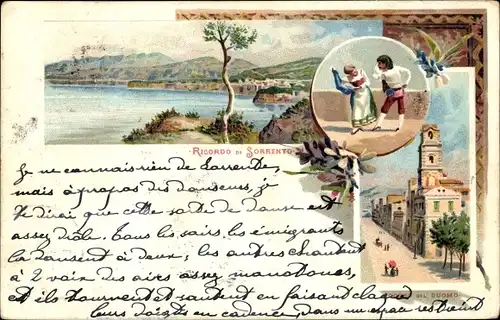 RICORDO DI SORRENTO
Je ne connais rien de Sorrente,
mais à propos des danseurs, je
te dirai que cette sorte de danse est
assez drôle. Tous les soirs, les émigrants
la dansent à deux; les autres chantent
à 2 voix des airs assez monotones,
et ils tournent et sautent en faisant claquer
leurs doigts en cadence, dans un espace restreint
DUOMO